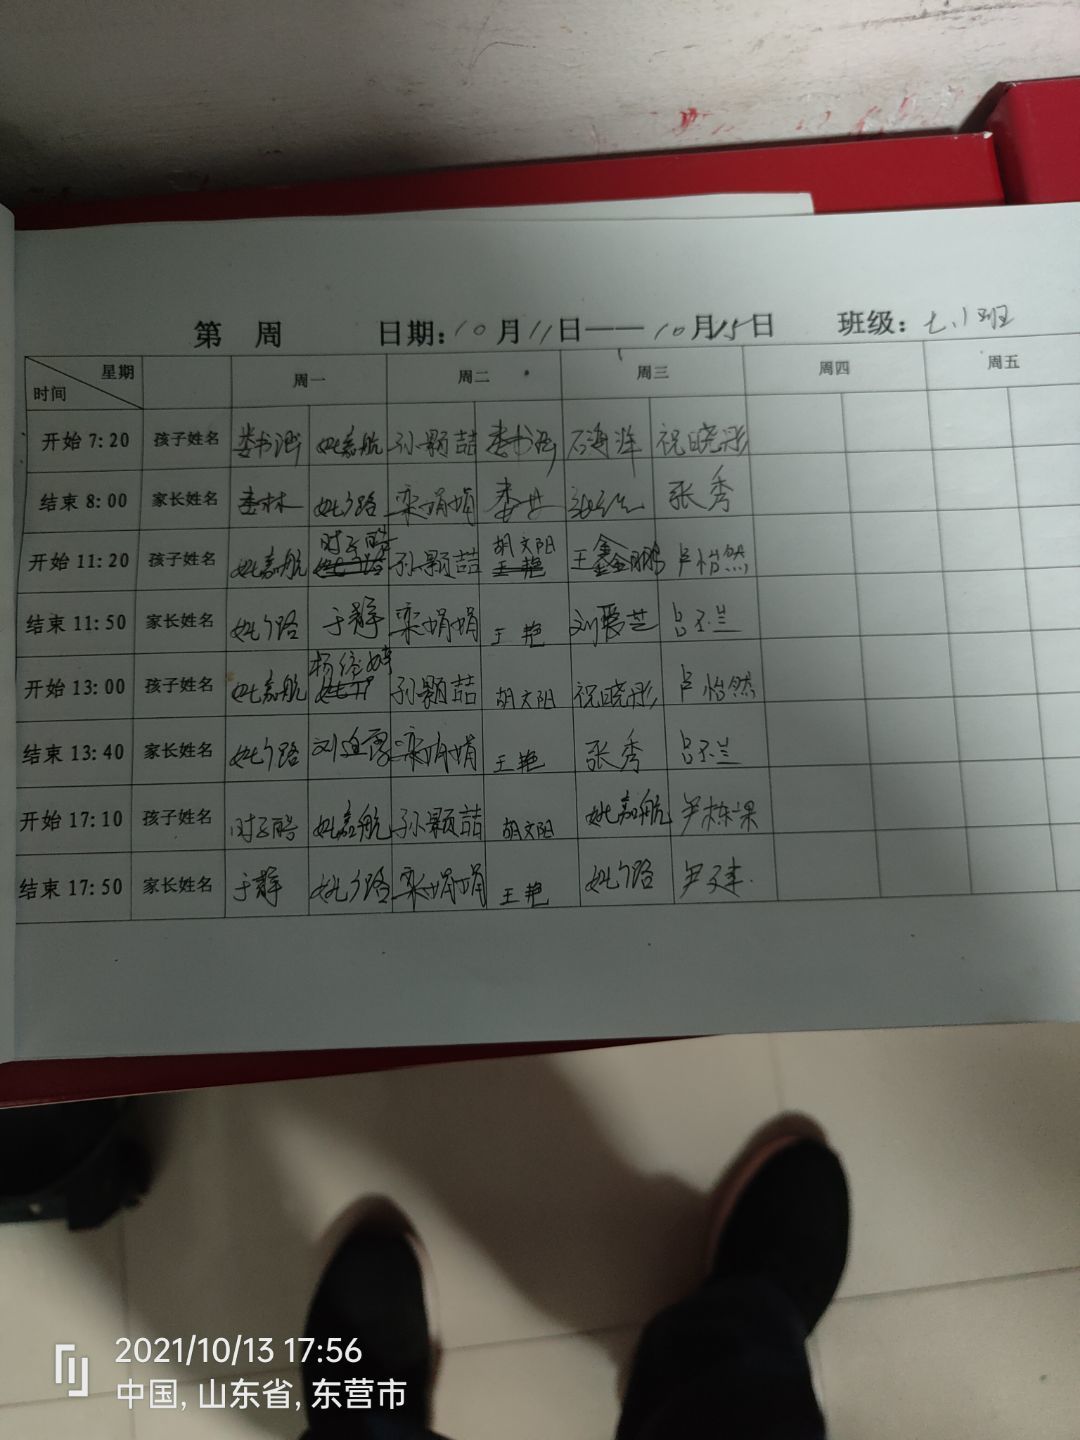 第 周 日期:10月11日——10月15日 班级:七.1班
星期 周一 周二 周三 周四 周五
时间
开始 7:20 孩子姓名 娄书涵 姚嘉航 孙颢喆 娄书涵 石海洋 祝晓彤
结束 8:00 家长姓名 娄林 姚路 栾娟娟 张秀
时子皓 胡文阳
开始 11:20 孩子姓名 姚嘉航 孙颢喆 王艳 王鑫鹏 卢怡然
结束 11:50 家长姓名 姚路 于静 栾娟娟 王艳 刘爱芝
开始 13:00 孩子姓名 姚嘉航 孙颢喆 胡文阳 祝晓彤 卢怡然
结束 13:40 家长姓名 姚路 栾娟娟 王艳 张秀
开始 17:10 孩子姓名 时子皓 姚嘉航 孙颢喆 胡文阳 姚嘉航 尹栋梁
结束 17:50 家长姓名 于静 姚路 栾娟娟 王艳 姚路
2021/10/13 17:56
中国, 山东省, 东营市